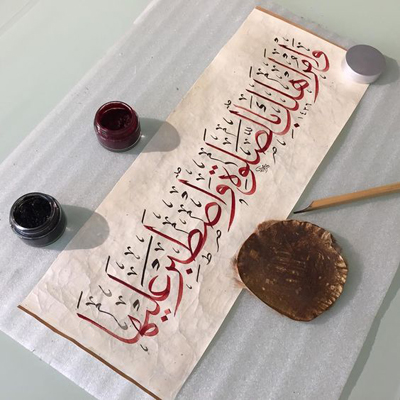 وَأْمُرْ أَهْلَكَ بِالصَّلَاةِ وَاصْطَبِرْ عَلَيْهَا